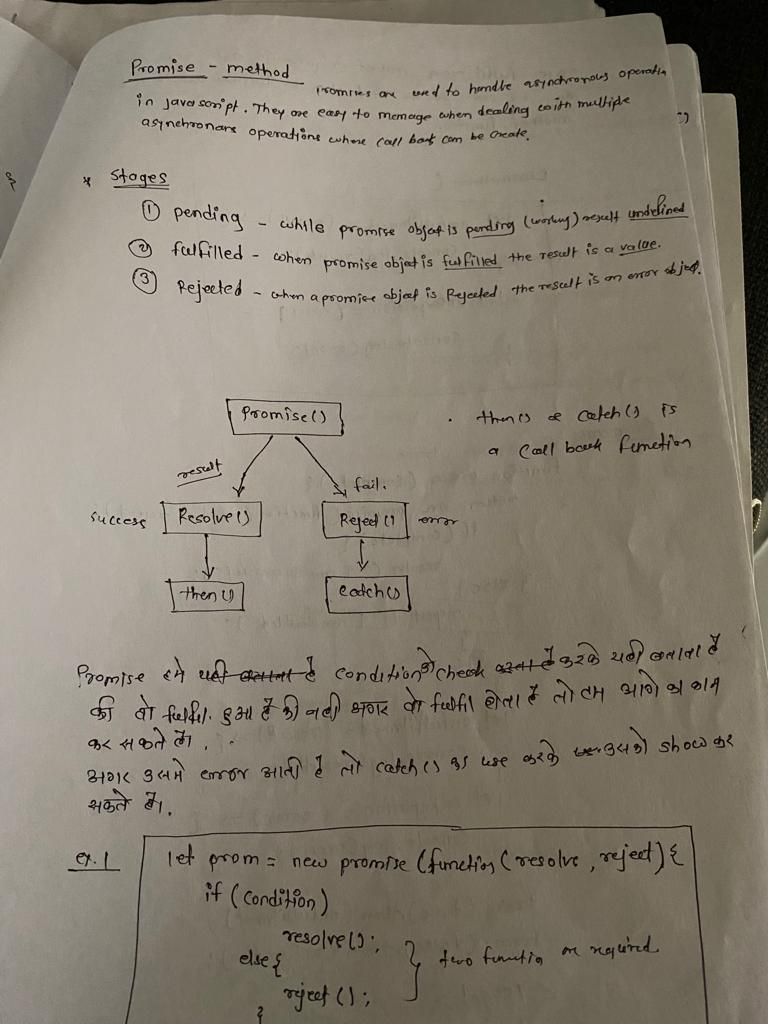 Promise - method
Promises are used to handle asynchronous operation
in javascript. They are easy to memage when dealing with multiple
asynchronans operations where call back can be create.
* Stages
① pending - while promise object is pending (working) result undefined
② fulfilled - when promise object is fulfilled the result is a value.
③ Rejected - when a promise object is Rejected the result is an error object.
Promise()
. then() & catch() is
a call back function
result
fail.
success
Resolve()
Reject()
error
then()
catch()
Promise हमे condition को check करके यही बताता है
की वो fulfil हुआ है की नही अगर वो fulfil होता है तो हम आगे का काम
कर सकते है।
अगर उसमे error आती है तो catch() का use करके उसको show कर
सकते है।
ex.1
let prom = new promise (function (resolve, reject) {
if (condition)
resolve();
else {
two function are required
reject ();
}